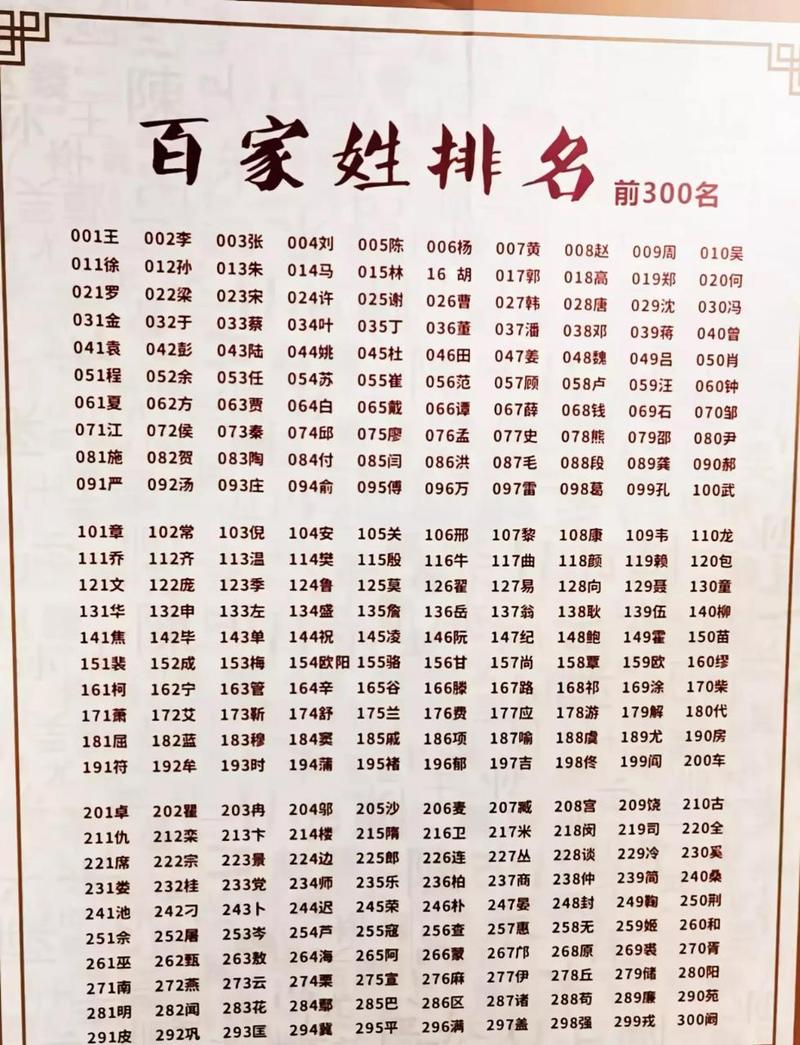 百家姓排名 前300名
001王 002李 003张 004刘 005陈 006杨 007黄 008赵 009周 010吴
011徐 012孙 013朱 014马 015林 16 胡 017郭 018高 019郑 020何
021罗 022梁 023宋 024许 025谢 026曹 027韩 028唐 029沈 030冯
031金 032于 033蔡 034叶 035丁 036董 037潘 038邓 039蒋 040曾
041袁 042彭 043陆 044姚 045杜 046田 047姜 048魏 049吕 050肖
051程 052余 053任 054苏 055崔 056范 057顾 058卢 059汪 060钟
061夏 062方 063贾 064白 065戴 066谭 067薛 068钱 069石 070邹
071江 072侯 073秦 074邱 075廖 076孟 077史 078熊 079邵 080尹
081施 082贺 083陶 084付 085闫 086洪 087毛 088段 089龚 090郝
091严 092汤 093庄 094俞 095傅 096万 097雷 098葛 099孔 100武
101章 102常 103倪 104安 105关 106邢 107黎 108康 109韦 110龙
111乔 112齐 113温 114樊 115殷 116牛 117曲 118颜 119赖 120包
121文 122庞 123季 124鲁 125莫 126翟 127易 128向 129聂 130童
131华 132申 133左 134盛 135詹 136岳 137翁 138耿 139伍 140柳
141焦 142毕 143单 144祝 145凌 146阮 147纪 148鲍 149霍 150苗
151裴 152成 153梅 154欧阳 155骆 156甘 157尚 158覃 159欧 160缪
161柯 162宁 163管 164辛 165谷 166滕 167路 168祁 169涂 170柴
171萧 172艾 173靳 174舒 175兰 176费 177应 178游 179解 180代
181屈 182蓝 183穆 184窦 185戚 186项 187喻 188虞 189尤 190房
191符 192牟 193时 194蒲 195褚 196郁 197吉 198佟 199阎 200车
201卓 202瞿 203冉 204邬 205沙 206麦 207臧 208宫 209饶 210古
211仇 212栾 213卞 214楼 215隋 216卫 217米 218闵 219司 220全
221席 222宗 223景 224边 225郎 226连 227丛 228谈 229冷 230奚
231娄 232桂 233党 234师 235乐 236柏 237商 238仲 239简 240桑
241池 242刁 243卜 244迟 245荣 246朴 247晏 248封 249鞠 250荆
251佘 252屠 253岑 254芦 255寇 256查 257惠 258无 259姬 260和
261巫 262甄 263敖 264海 265阿 266蒙 267邝 268原 269裘 270胥
271南 272燕 273云 274栗 275宣 276麻 277伊 278丘 279储 280阳
281明 282闻 283花 284鄢 285巴 286区 287诸 288苟 289廉 290苑
291皮 292巩 293匡 294冀 295平 296满 297盖 298强 299戎 300阙